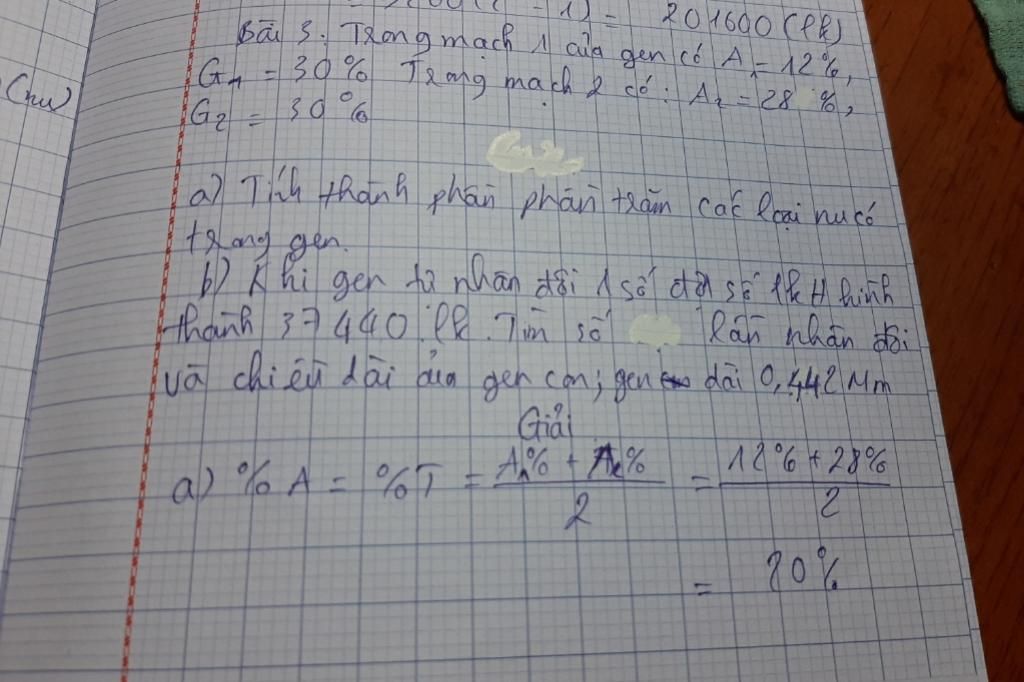 = 201600 (lk)
(nu)
Bài 3: Trong mạch 1 của gen có A₁ = 12%,
G₁ = 30% Trong mạch 2 có: A₂ = 28 %,
G₂ = 30%
a) Tính thành phần phần trăm các loại nu có
trong gen.
b) Khi gen tự nhân đôi 1 số đợt số lk H hình
thành 37440 lk. Tìm số lần nhân đôi
và chiều dài của gen con; gen dài 0,442 Mm
Giải
a) %A = %T = A₁% + A₂% / 2 = 12% + 28% / 2
= 20%